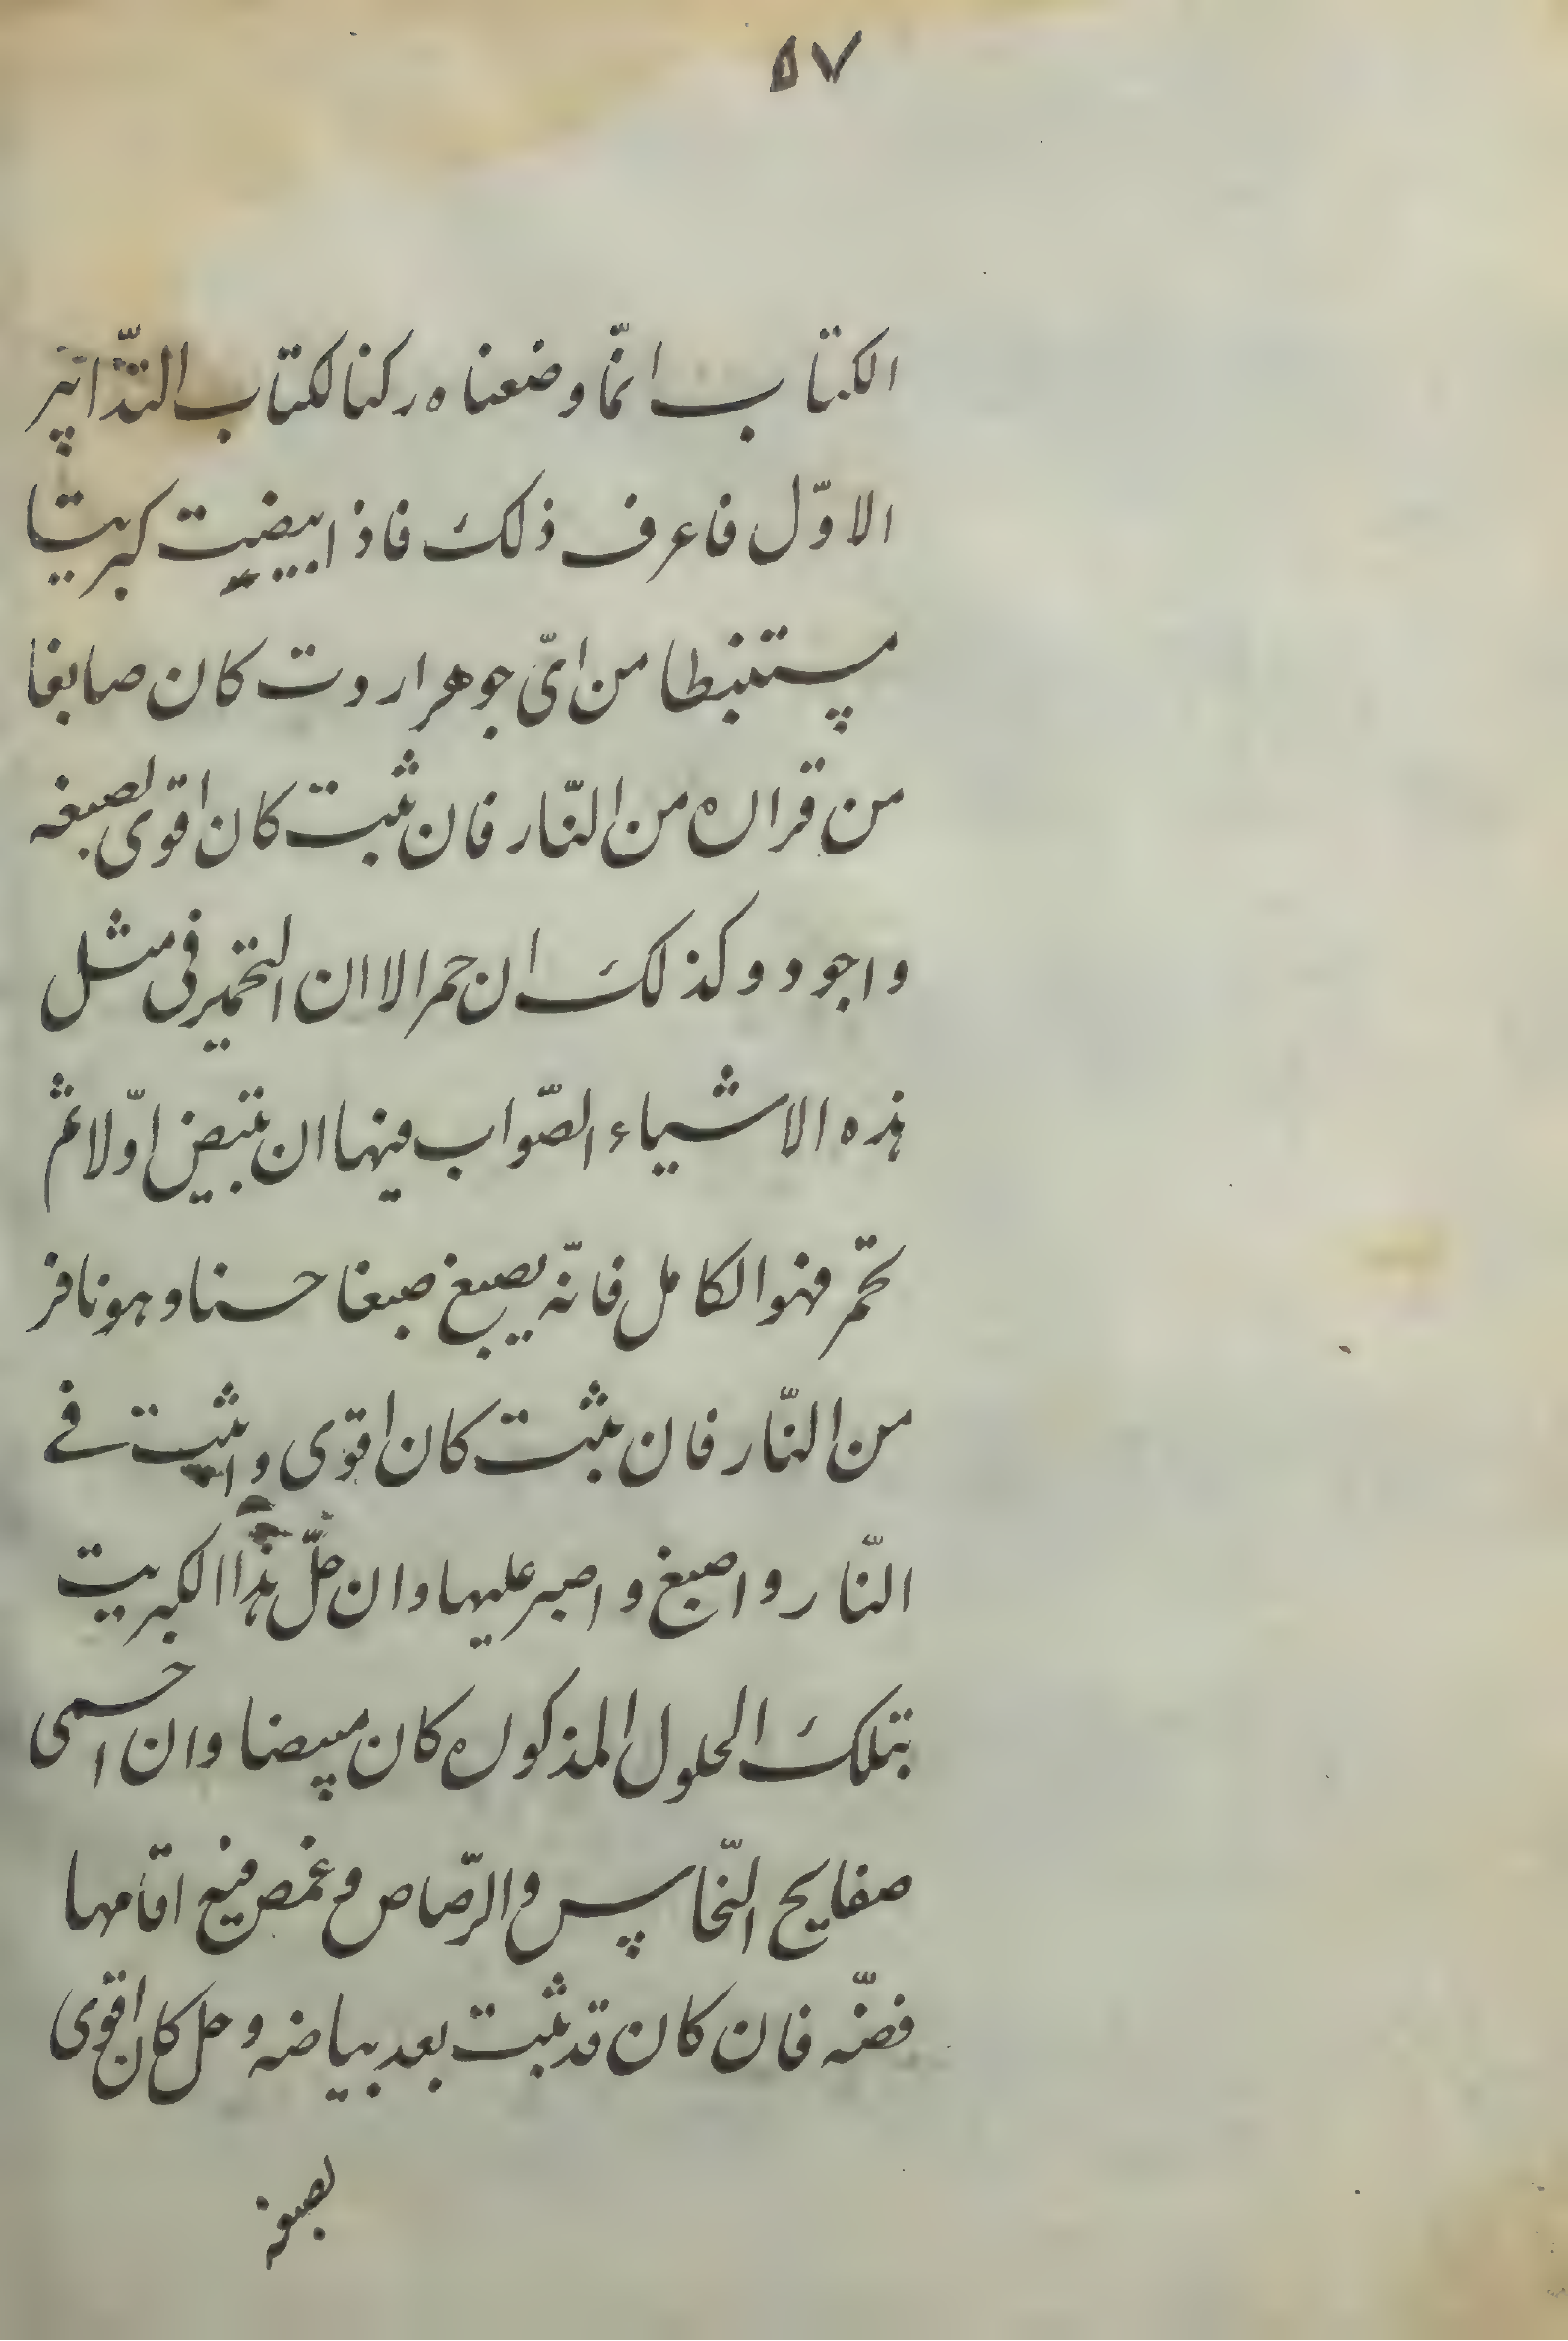 ٥٧
الكتاب انمّا وضعناه ركنا لكتاب التدابير
الاوّل فاعرف ذلك فاذا بيضت كبريتا
مستنبطا من اىّ جوهر اردت كان صابغا
من قراره من النّار فان ثبت كان اقوى لصبغه
واجود وكذلك ان حمر الا ان التحمير فى مثل
هذه الاشياء الصّواب فيها ان تبيض اوّلا ثم
تحمّر فهو الكامل فانّه يصبغ صبغا حسنا وهو نافر
من النّار فان ثبت كان اقوى واثبت فے
النّار واصبغ واصبر عليها وان حلّ هذا الكبريت
بتلك الحلول المذكوره كان مبيضا وان احمى
صفايح النّحاس والرّصاص وغمص فيع اقامها
فضّه فان كان قد ثبت بعد بياضه وحل كان اقوى
لصبغه